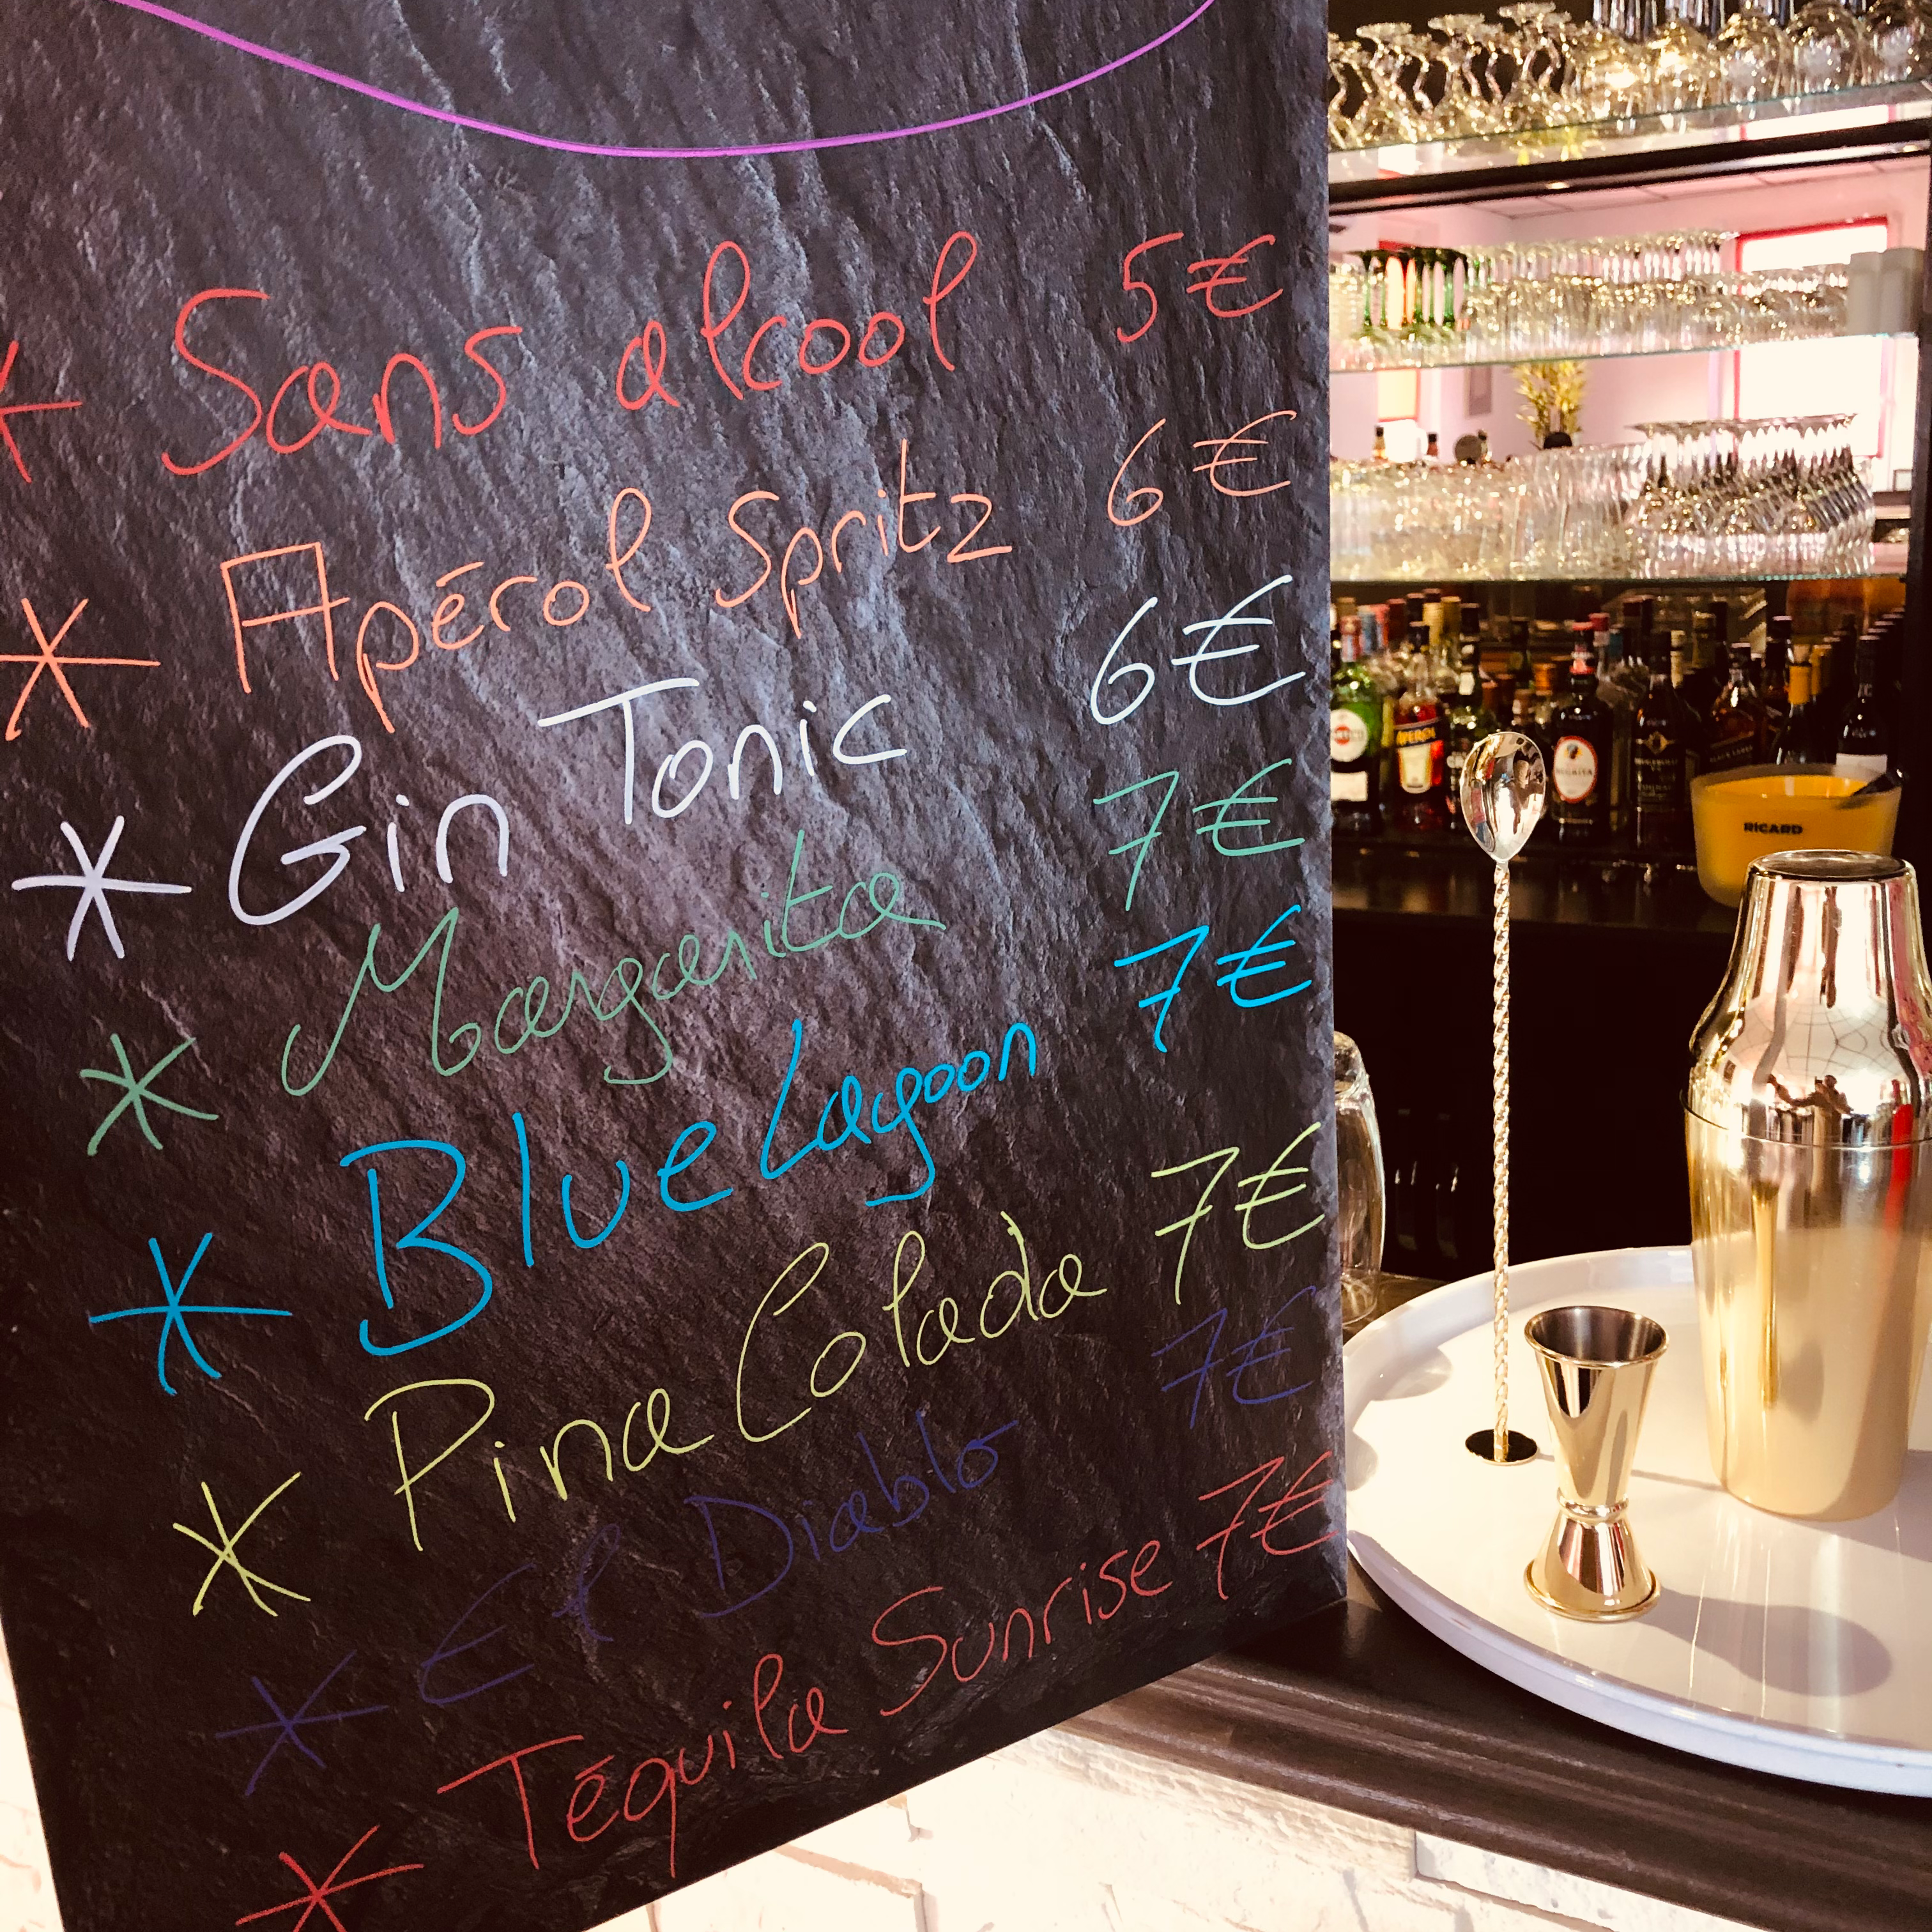 * Sans alcool 5€
* Apérol Spritz 6€
* Gin Tonic 6€
* Margarita 7€
* Blue Lagoon 7€
* Pina Colada 7€
* El Diablo 7€
* Téquila Sunrise 7€
APEROL
RICARD